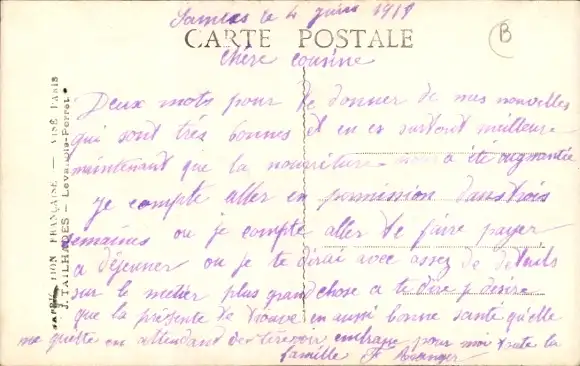 Saintes le 4 juin 1918
CARTE POSTALE
B
chère cousine
Deux mots pour te donner de mes nouvelles
qui sont très bonnes et en es surtout meilleure
maintenant que la nourriture nous a été augmantée
Je compte aller en permission dans trois
semaines ou je compte aller te faire payer
a déjeuner ou je te dirai avec assez de détails
sur le métier plus grand chose a te dire je désire
que la présente te trouve en aussi bonne santé qu'elle
me quitte en attendant de te revoir embrasse pour moi toute la
famille F.
FABRICATION FRANÇAISE — VISÉ PARIS
J. TAILHADES — Levallois-Perret